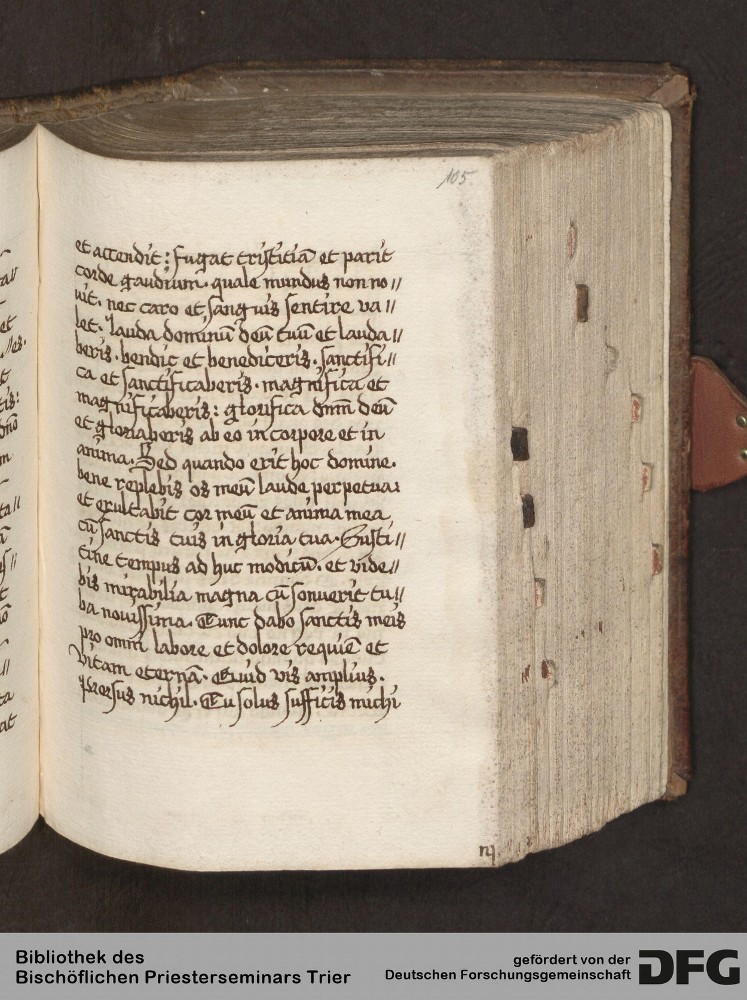 105
et accendit : fugat tristitiā et parit
corde gaudium . quale mundus non no //
uit . nec caro et sanguis sentire va //
let . lauda dominū deū tuū et lauda //
beris . bendic et benediceris . sanctifi //
ca et sanctificaberis . magnifica et
magnificaberis : glorifica dnm̄ deū
et gloriaberis ab eo in corpore et in
anima . Sed quando erit hoc domine .
bene replebis os meū laude perpetua :
et exultabit cor meū et anima mea
cū sanctis tuis in gloria tua . Susti //
tine tempus ad huc modicū . et vide //
bis mirabilia magna cū sonuerit tu //
ba novissima . Tunc dabo sanctis meis
pro omni labore et dolore requiē et
vitam eternā . Quid vis amplius .
Prorsus nichil . Tu solus sufficis michi
Bibliothek des
Bischöflichen Priesterseminars Trier
gefördert von der
Deutschen Forschungsgemeinschaft
DFG